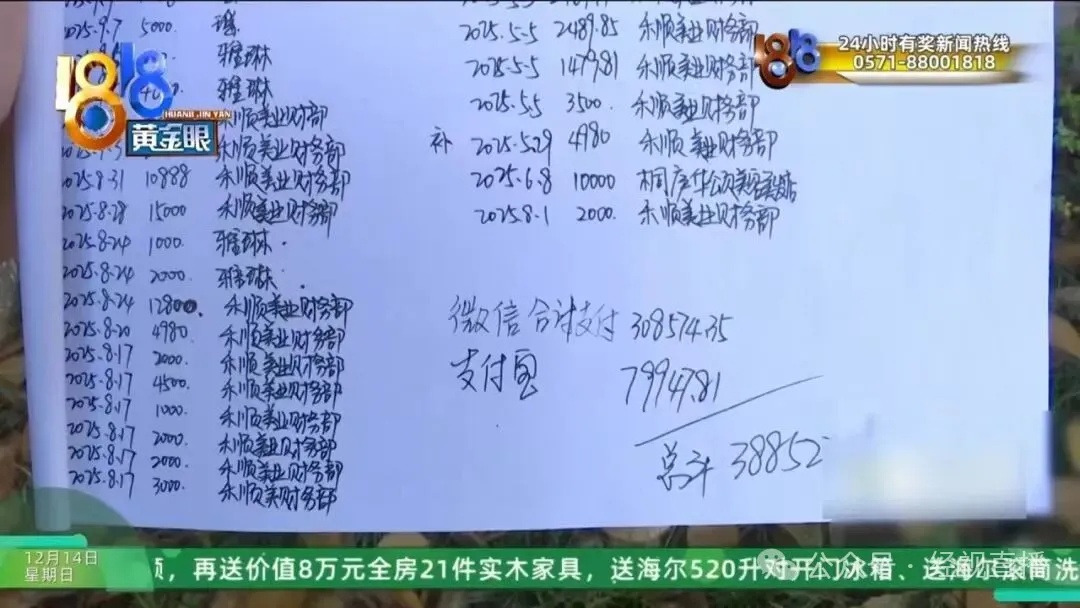 2025.9.7 5000
雅琳
雅琳
禾顺美业财务部
禾顺美业财务部
2025.8.31 10888 禾顺美业财务部
2025.8.28 15000 禾顺美业财务部
2025.8.24 1000. 雅琳.
2025.8.24 2000. 雅琳.
2025.8.24 12800. 禾顺美业财务部
2025.8.20 4980. 禾顺美业财务部
2025.8.17 2000. 禾顺美业财务部
2025.8.17 4500. 禾顺美业财务部
2025.8.17 1000. 禾顺美业财务部
2025.8.17 2000. 禾顺美业财务部
2025.8.17 2000. 禾顺美业财务部
2025.8.17 3000. 禾顺美财务部
2025.5.5 2489.85 禾顺美业财务部
2025.5.5 1479.81 禾顺美业财务部
2025.5.5 3500. 禾顺美业财务部
补 2025.5.29 4980 禾顺美业财务部
2025.6.8 10000 桐庐华颂美容
2025.8.1 2000. 禾顺美业财务部
微信合计支付 308574.35
支付宝 79947.81
总计 38852
1818
HUANG JIN YAN
黄金眼
24小时有奖新闻热线
0571-88001818
12月14日
星期日
，再送价值8万元全房21件实木家具，送海尔520升对开门冰箱、送海尔滚筒洗
公众号·经视直播